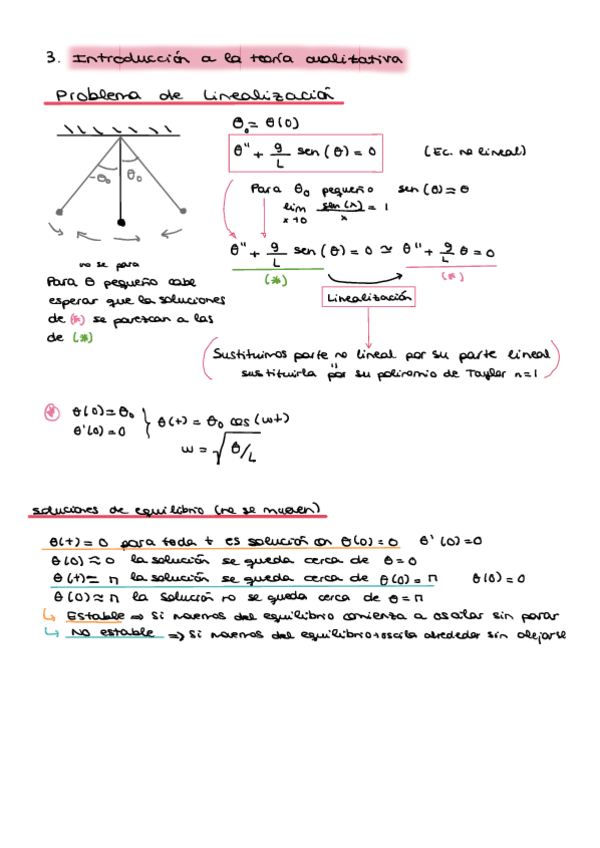 3. Introducción a la teoría cualitativa
Problema de linealización
θ₀ = θ(0)
θ'' + g/L sen(θ) = 0 (Ec. no lineal)
-θ₀ θ₀
Para θ₀ pequeño sen(θ) ≈ θ
lim x→0 sen(x)/x = 1
θ'' + g/L sen(θ) = 0 ≃ θ'' + g/L θ = 0
(*) (*)
Linealización
no se para
Para θ pequeño cabe
esperar que la soluciones
de (*) se parezcan a las
de (*)
Sustituimos parte no lineal por su parte lineal
"
sustituirla por su polinomio de Taylor n=1
θ(0) = θ₀
θ'(0) = 0
θ(t) = θ₀ cos(wt)
w = √θ/L
soluciones de equilibrio (no se mueven)
θ(t) = 0 para toda t es solución con θ(0) = 0 θ'(0) = 0
θ(0) ≈ 0 la solución se queda cerca de θ = 0
θ(t) = π la solución se queda cerca de θ(0) = π θ(0) = 0
θ(0) ≈ π la solución no se queda cerca de θ = π
↳ Estable => Si movemos del equilibrio comienza a oscilar sin parar
↳ No estable => Si movemos del equilibrio oscila alrededor sin alejarse